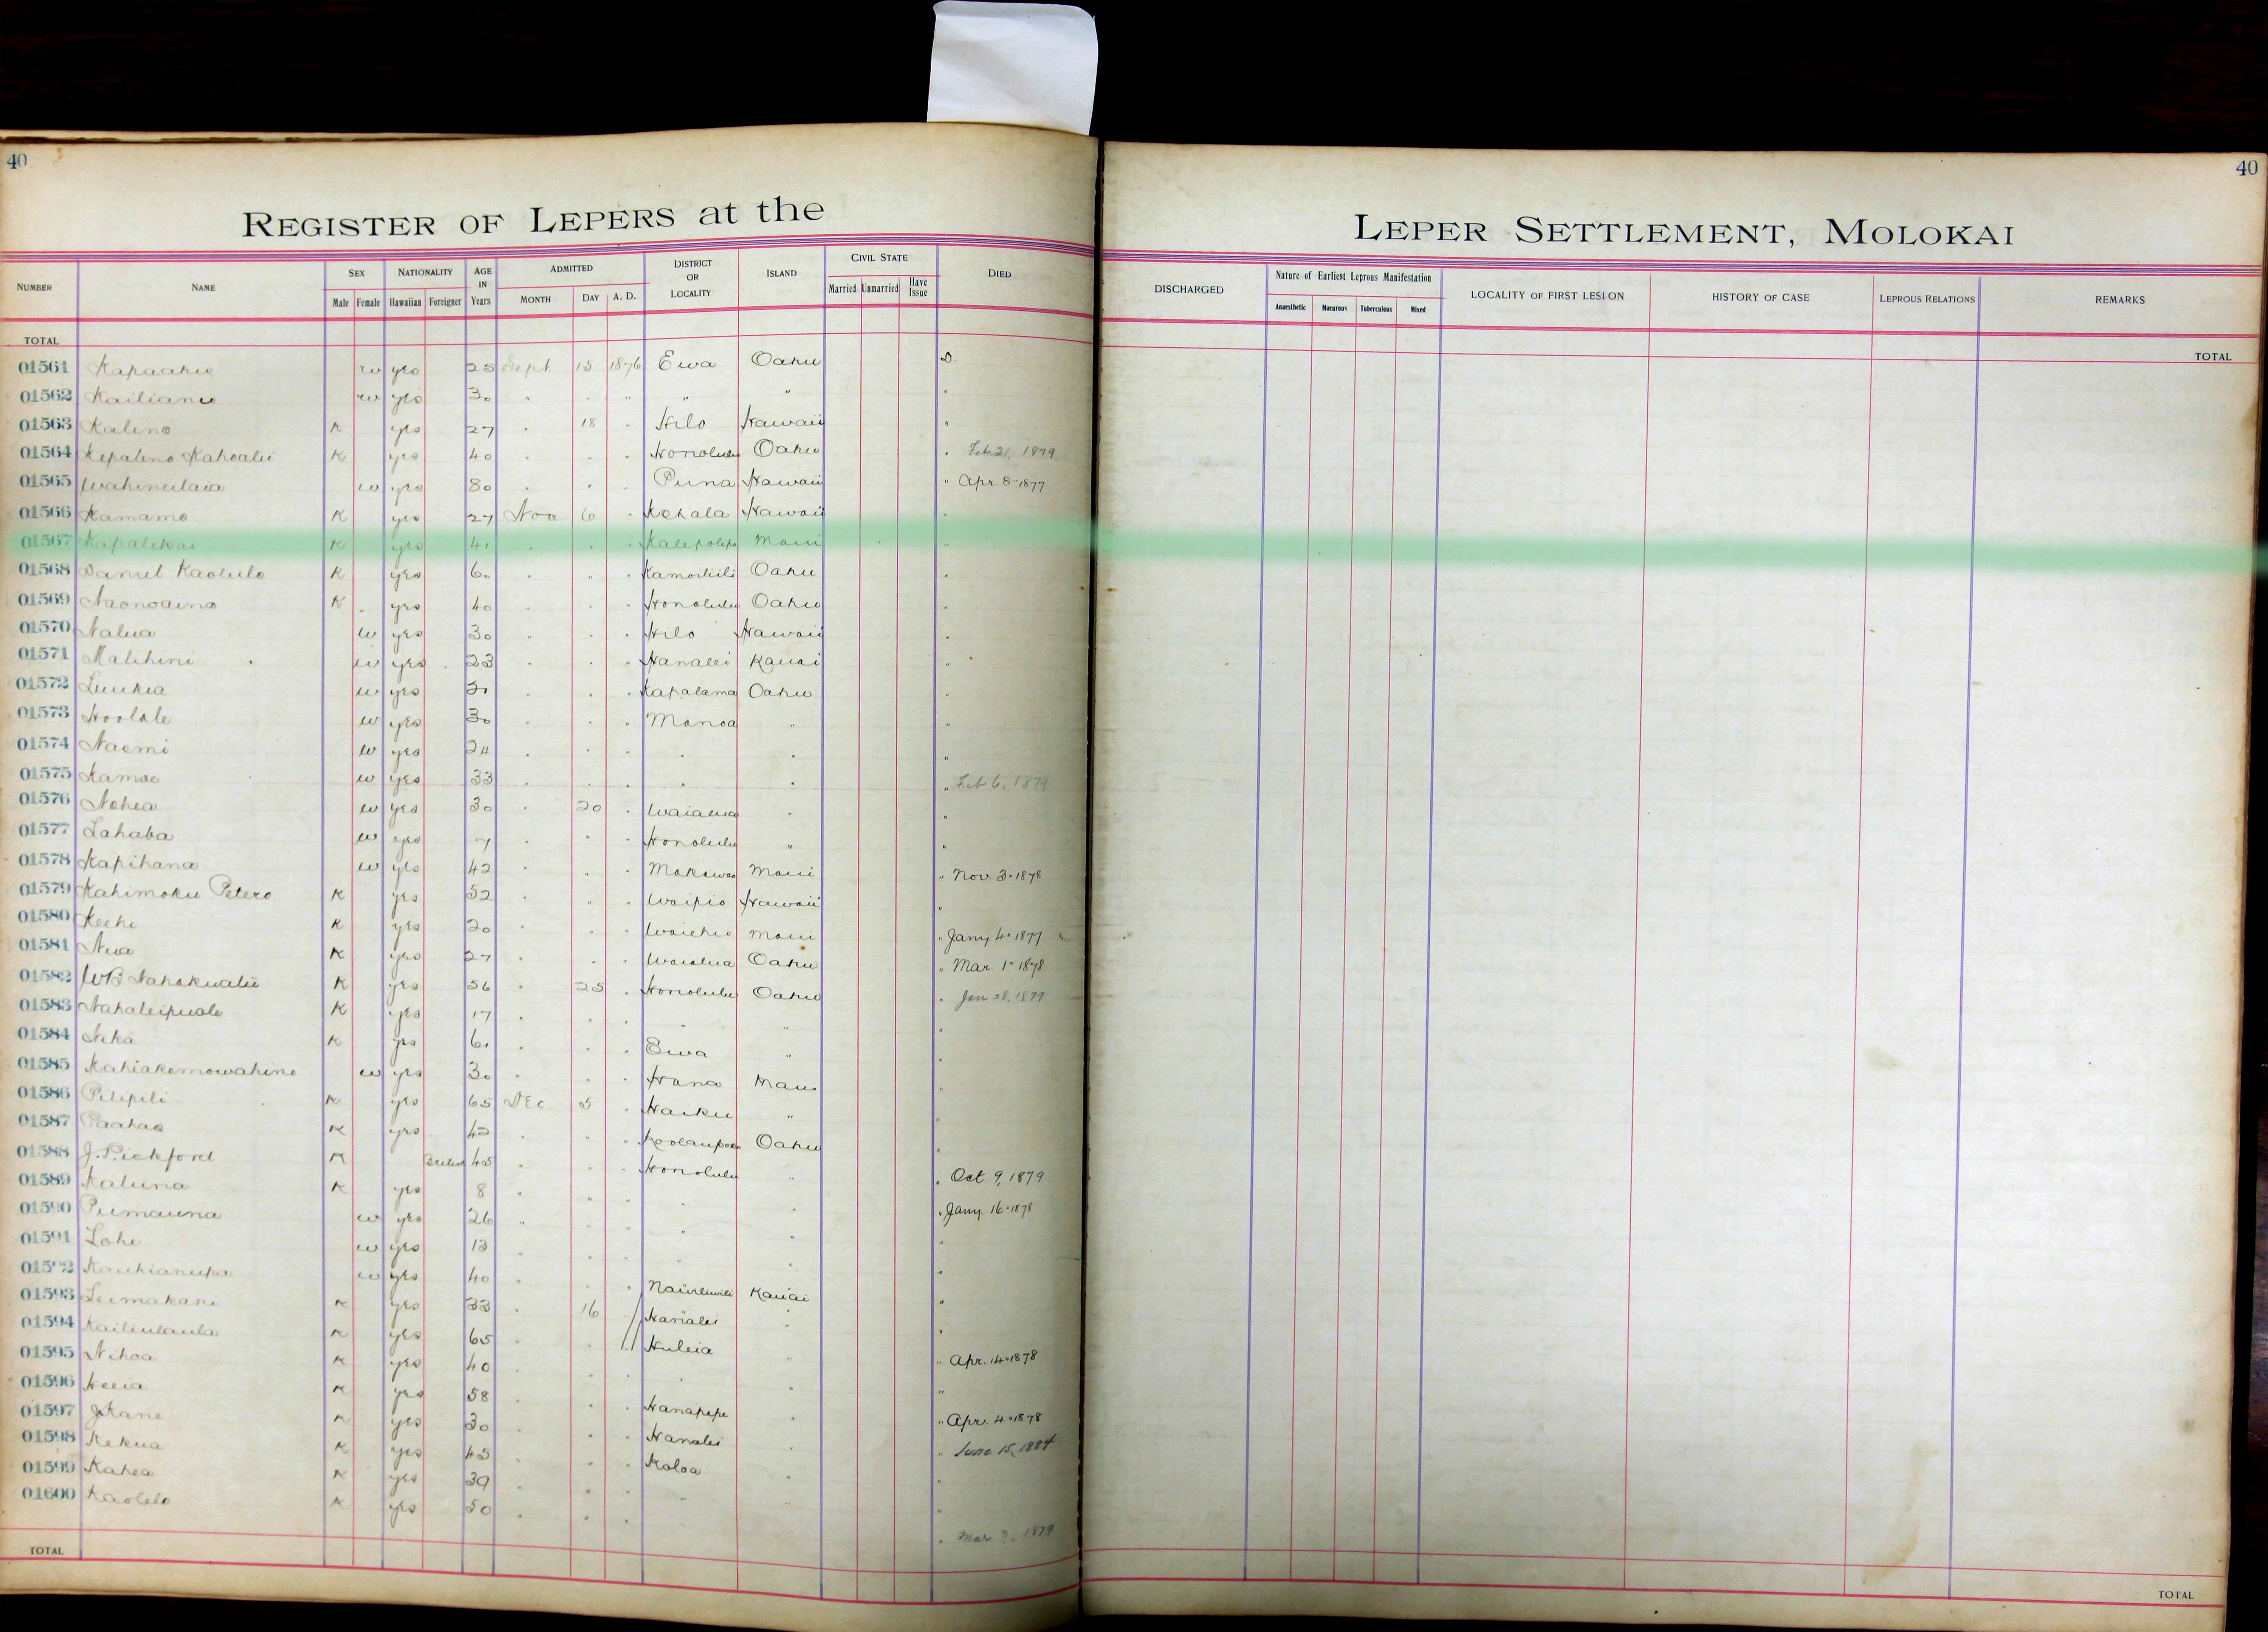 40
REGISTER OF LEPERS at the
NUMBER NAME SEX Male Female NATIONALITY Hawaiian Foreigner AGE IN Years ADMITTED MONTH DAY A. D. DISTRICT OR LOCALITY ISLAND CIVIL STATE Married Unmarried Have Issue DIED
TOTAL
01561 Kapaahu w yes 25 Sept 15 1876 Ewa Oahu D.
01562 Kailianu w yes 30 " " " " " "
01563 Kalino K yes 27 " 18 " Hilo Hawaii "
01564 Kepalino Kahoalii K yes 40 " " " Honolulu Oahu " Feb 21, 1879
01565 Wahineilaia w yes 80 " " " Puna Hawaii " Apr. 8 " 1877
01566 Kamamo K yes 27 Nov 6 " Kohala Hawaii "
01567 Kapalikai K yes 41 " " " Kalepolepo Maui "
01568 Daniel Kaolulo K yes 60 " " " Kamoiliili Oahu "
01569 Naonoaina K yes 40 " " " Honolulu Oahu "
01570 Nalua w yes 30 " " " Hilo Hawaii "
01571 Malihini w yes 23 " " " Hanalei Kauai "
01572 Luukia w yes " " " Kapalama Oahu "
01573 Hoolale w yes 30 " " " Manoa " "
01574 Naomi w yes 24 " " " " " "
01575 Kamae w yes 33 " " " " " " Feb 6, 1879
01576 Nohea w yes 30 " 20 " Waialua " "
01577 Lahaba w yes 7 " " " Honolulu " "
01578 Kapihana w yes 42 " " " Makawao Maui " Nov. 3 " 1878
01579 Kahimoku Petero K yes 52 " " " Waipio Hawaii "
01580 Keehi K yes 20 " " " Waiehu Maui " Jany 4 " 1877 "
01581 Niva K yes 27 " " " Waialua Oahu " Mar. 1 " 1878
01582 WB Nahokualii K yes 56 " 25 " Honolulu Oahu " Jan 28, 1879
01583 Nahaleipuale K yes 17 " " " " " "
01584 Nika K yes 61 " " " Ewa " "
01585 Kahiakemowahine w yes 30 " " " Hana Maui "
01586 Pilipili K yes 65 Dec 5 " Haiku " "
01587 Paahao K yes 42 " " " Koolaupoko Oahu "
01588 J. Pickford K British 45 " " " Honolulu " " Oct. 9, 1879
01589 Kaluna K yes 8 " " " " " " Jany 16 " 1878
01590 Puimauna w yes 26 " " " " " "
01591 Lohe w yes 13 " " " " " "
01592 Kauhianupa w yes 40 " " " Nawiliwili Kauai "
01593 Leimakani K yes 33 " 16 " Hanalei " "
01594 Kailiulaula K yes 65 " " " Huleia " " Apr. 14 " 1878
01595 Nihoa K yes 40 " " " " " "
01596 Heeia K yes 58 " " " Hanapepe " " Apr. 4 " 1878
01597 J Kane K yes 30 " " " Hanalei " " June 15, 1884
01598 Kekua K yes 45 " " " Koloa " "
01599 Kahea K yes 39 " " " " " "
01600 Kaolelo K yes 50 " " " " Mar 3, 1879
TOTAL
40
LEPER SETTLEMENT, MOLOKAI
DISCHARGED Nature of Earliest Leprous Manifestation Anaesthetic Macurous Tuberculous Mixed LOCALITY OF FIRST LESION HISTORY OF CASE LEPROUS RELATIONS REMARKS
TOTAL
TOTAL